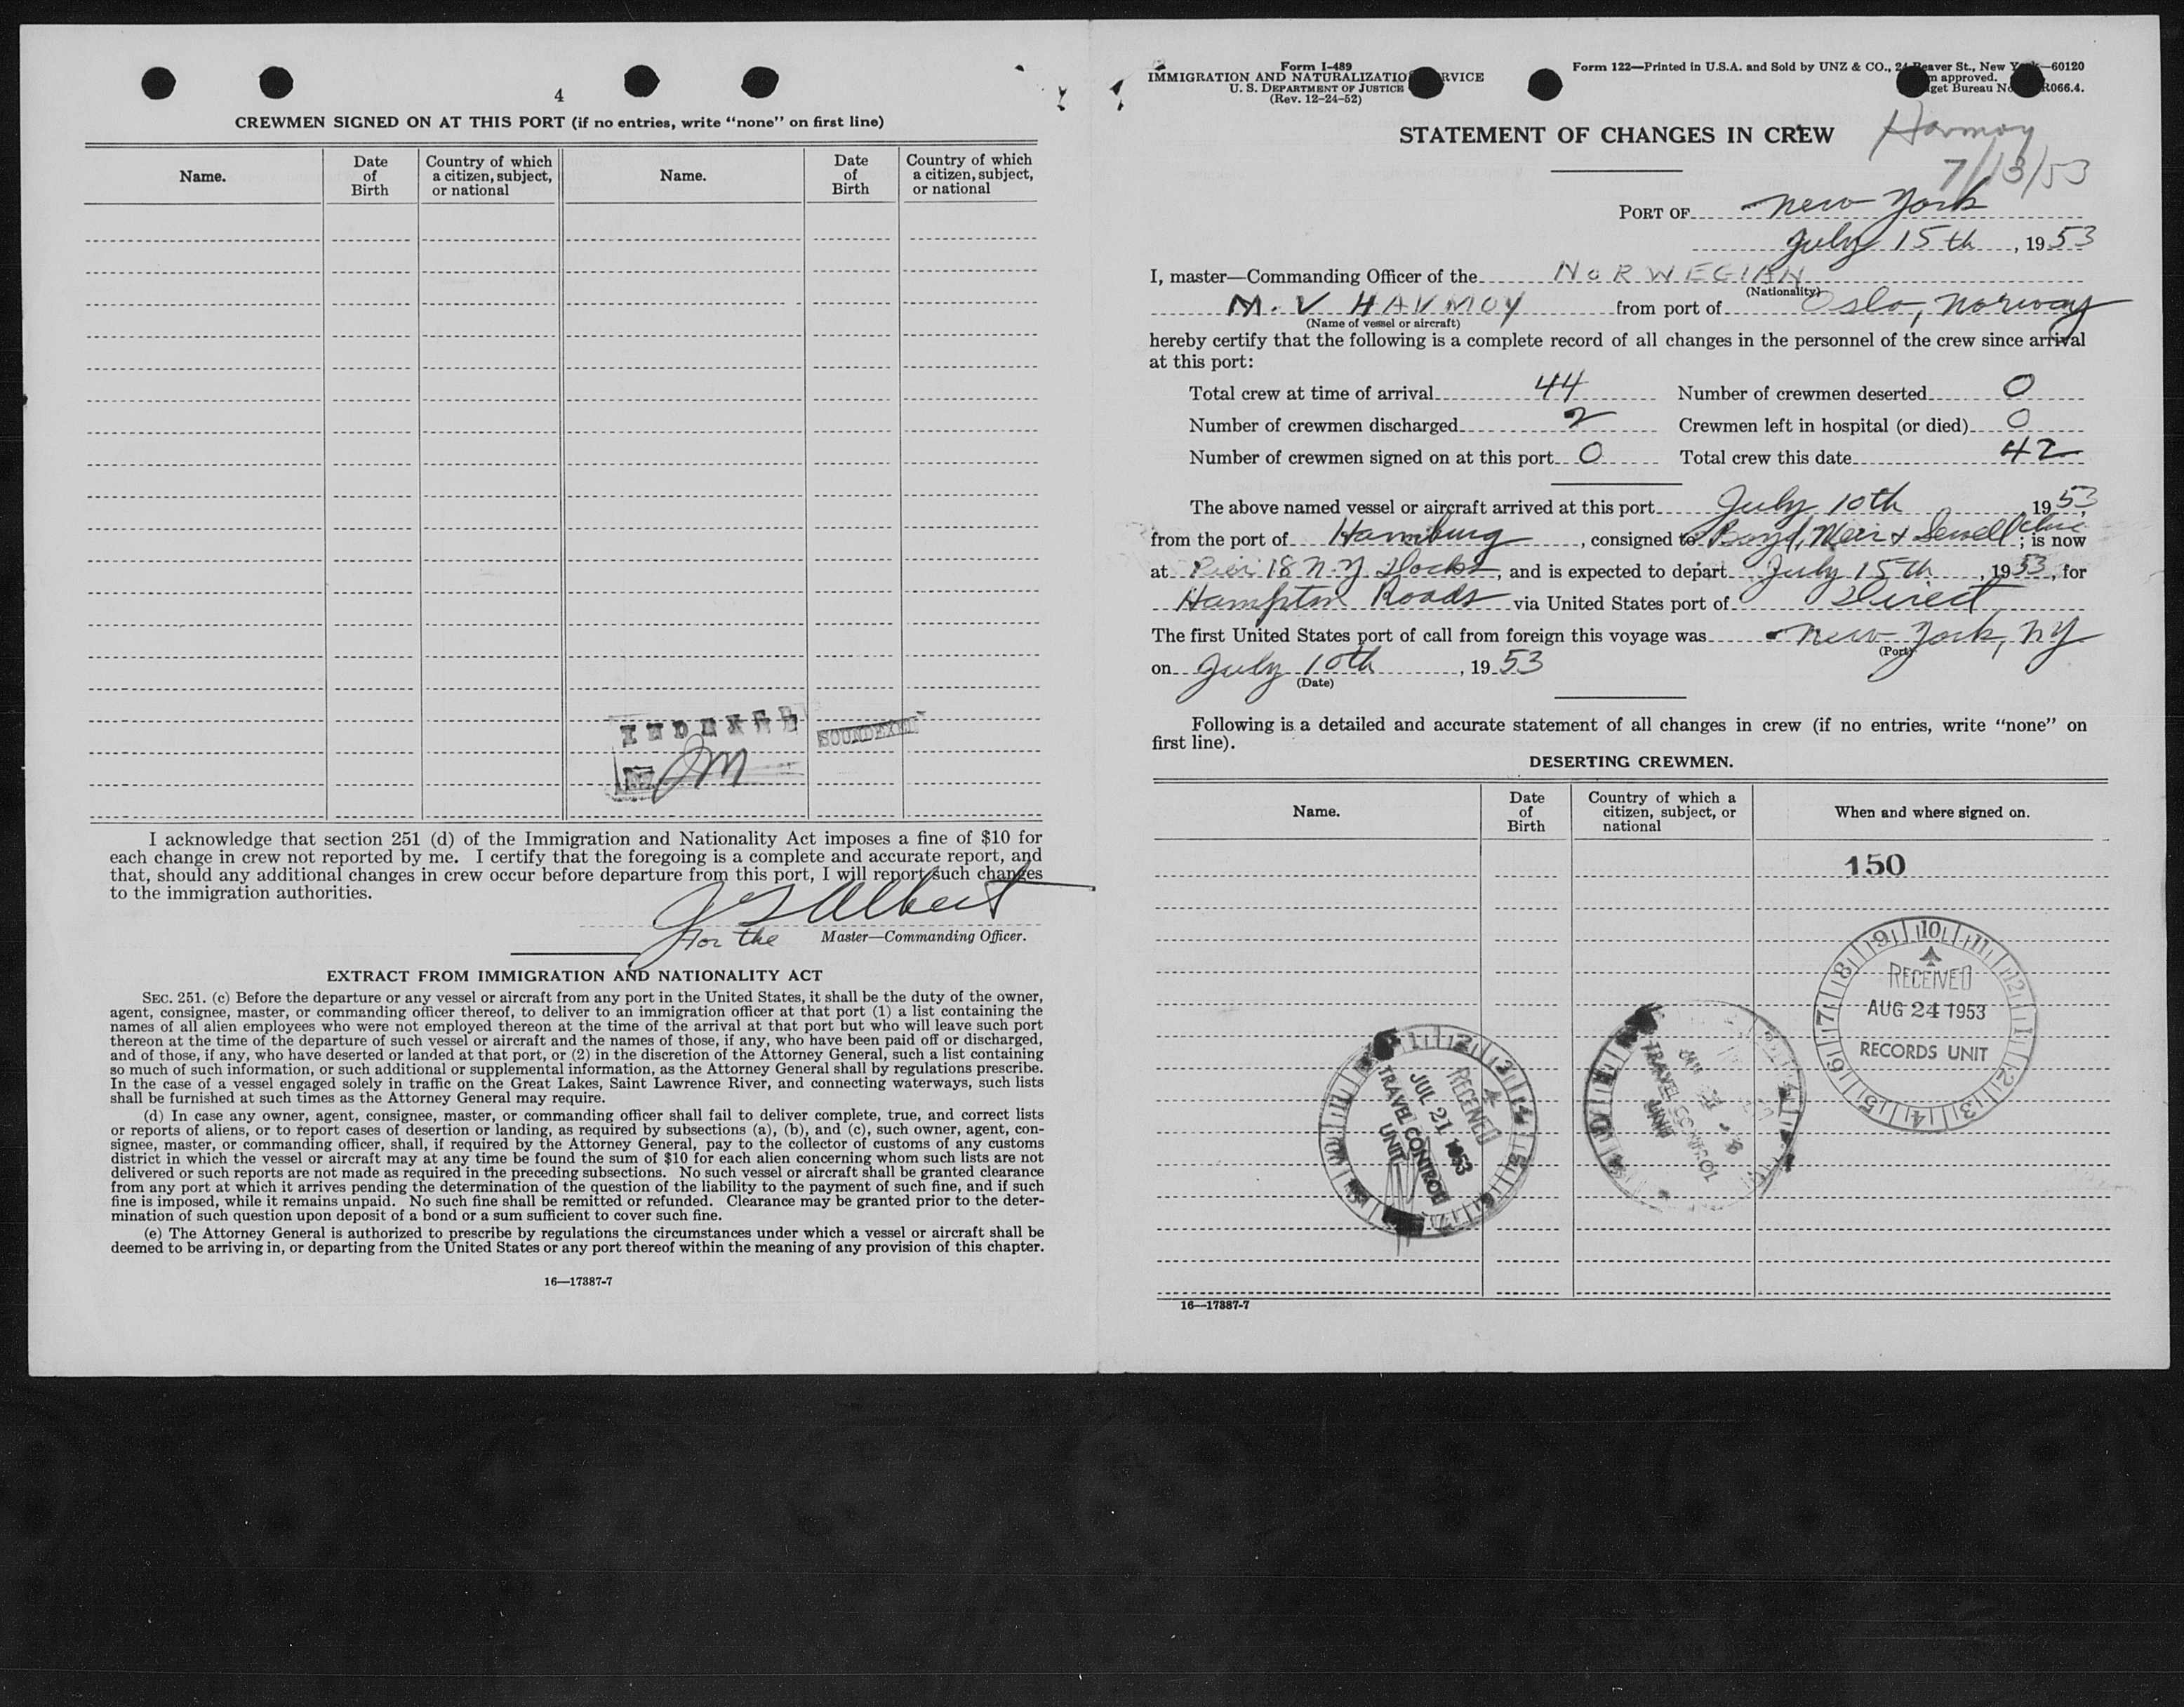 4
CREWMEN SIGNED ON AT THIS PORT (if no entries, write "none" on first line)
Name. Date of Birth Country of which a citizen, subject, or national Name. Date of Birth Country of which a citizen, subject, or national
INDEXED SOUNDEXED
I acknowledge that section 251 (d) of the Immigration and Nationality Act imposes a fine of $10 for
each change in crew not reported by me. I certify that the foregoing is a complete and accurate report, and
that, should any additional changes in crew occur before departure from this port, I will report such changes
to the immigration authorities.
Albert
For the Master—Commanding Officer.
EXTRACT FROM IMMIGRATION AND NATIONALITY ACT
SEC. 251. (c) Before the departure or any vessel or aircraft from any port in the United States, it shall be the duty of the owner,
agent, consignee, master, or commanding officer thereof, to deliver to an immigration officer at that port (1) a list containing the
names of all alien employees who were not employed thereon at the time of the arrival at that port but who will leave such port
thereon at the time of the departure of such vessel or aircraft and the names of those, if any, who have been paid off or discharged,
and of those, if any, who have deserted or landed at that port, or (2) in the discretion of the Attorney General, such a list containing
so much of such information, or such additional or supplemental information, as the Attorney General shall by regulations prescribe.
In the case of a vessel engaged solely in traffic on the Great Lakes, Saint Lawrence River, and connecting waterways, such lists
shall be furnished at such times as the Attorney General may require.
(d) In case any owner, agent, consignee, master, or commanding officer shall fail to deliver complete, true, and correct lists
or reports of aliens, or to report cases of desertion or landing, as required by subsections (a), (b), and (c), such owner, agent, con-
signee, master, or commanding officer, shall, if required by the Attorney General, pay to the collector of customs of any customs
district in which the vessel or aircraft may at any time be found the sum of $10 for each alien concerning whom such lists are not
delivered or such reports are not made as required in the preceding subsections. No such vessel or aircraft shall be granted clearance
from any port at which it arrives pending the determination of the question of the liability to the payment of such fine, and if such
fine is imposed, while it remains unpaid. No such fine shall be remitted or refunded. Clearance may be granted prior to the deter-
mination of such question upon deposit of a bond or a sum sufficient to cover such fine.
(e) The Attorney General is authorized to prescribe by regulations the circumstances under which a vessel or aircraft shall be
deemed to be arriving in, or departing from the United States or any port thereof within the meaning of any provision of this chapter.
16—17387-7
Form I-489
IMMIGRATION AND NATURALIZATIO RVICE
U. S. DEPARTMENT OF JUSTICE
(Rev. 12-24-52)
Form 122—Printed in U.S.A. and Sold by UNZ & CO., 24 Beaver St., New York—60120
approved.
get Bureau No. R066.4.
STATEMENT OF CHANGES IN CREW
Havmoy
7/13/53
PORT OF New York
July 15th, 1953
I, master—Commanding Officer of the NORWEGIAN
(Nationality)
M.V HAVMOY from port of Oslo, Norway
(Name of vessel or aircraft)
hereby certify that the following is a complete record of all changes in the personnel of the crew since arrival
at this port:
Total crew at time of arrival 44 Number of crewmen deserted 0
Number of crewmen discharged 2 Crewmen left in hospital (or died) 0
Number of crewmen signed on at this port 0 Total crew this date 42
The above named vessel or aircraft arrived at this port July 10th, 1953,
from the port of Hamburg, consigned to Boyd, Weir & Sewell Inc; is now
at Pier 18 N.Y. Docks, and is expected to depart July 15th, 1953, for
Hampton Roads via United States port of Direct
The first United States port of call from foreign this voyage was New York, NY
(Port)
on July 10th, 1953
(Date)
Following is a detailed and accurate statement of all changes in crew (if no entries, write "none" on
first line).
DESERTING CREWMEN.
Name. Date of Birth Country of which a citizen, subject, or national When and where signed on.
150
RECEIVED
AUG 24 1953
RECORDS UNIT
RECEIVED
JUL 21 1953
TRAVEL CONTROL
UNIT
TRAVEL CONTROL
UNIT
16—17387-7